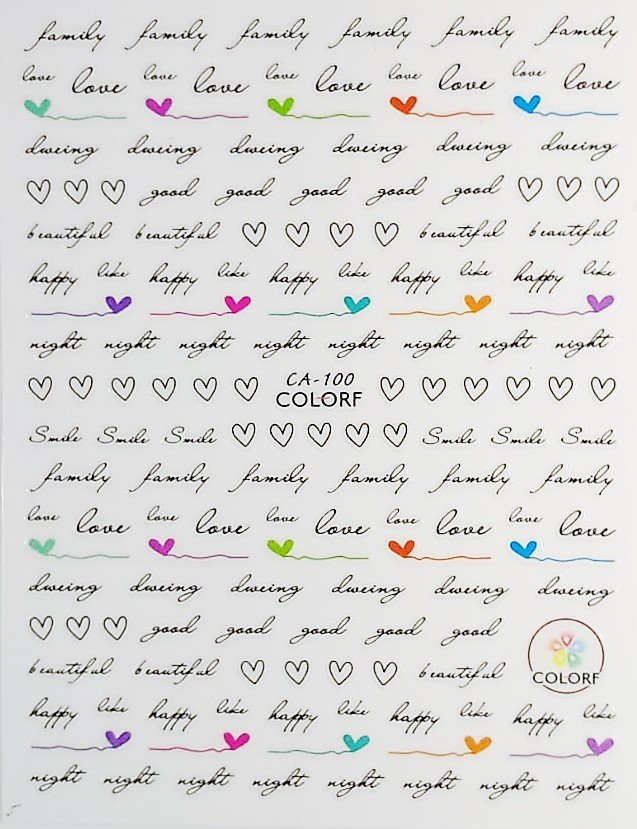 family family family family family family
love love love love love love love love love love
dweing dweing dweing dweing dweing dweing
good good good good good
beautiful beautiful beautiful beautiful
happy like happy like happy like happy like happy like
night night night night night night night night
CA-100
COLORF
Smile Smile Smile Smile Smile Smile
family family family family family family
love love love love love love love love love love
dweing dweing dweing dweing dweing dweing
good good good good good
beautiful beautiful beautiful
COLORF
happy like happy like happy like happy like happy like
night night night night night night night night